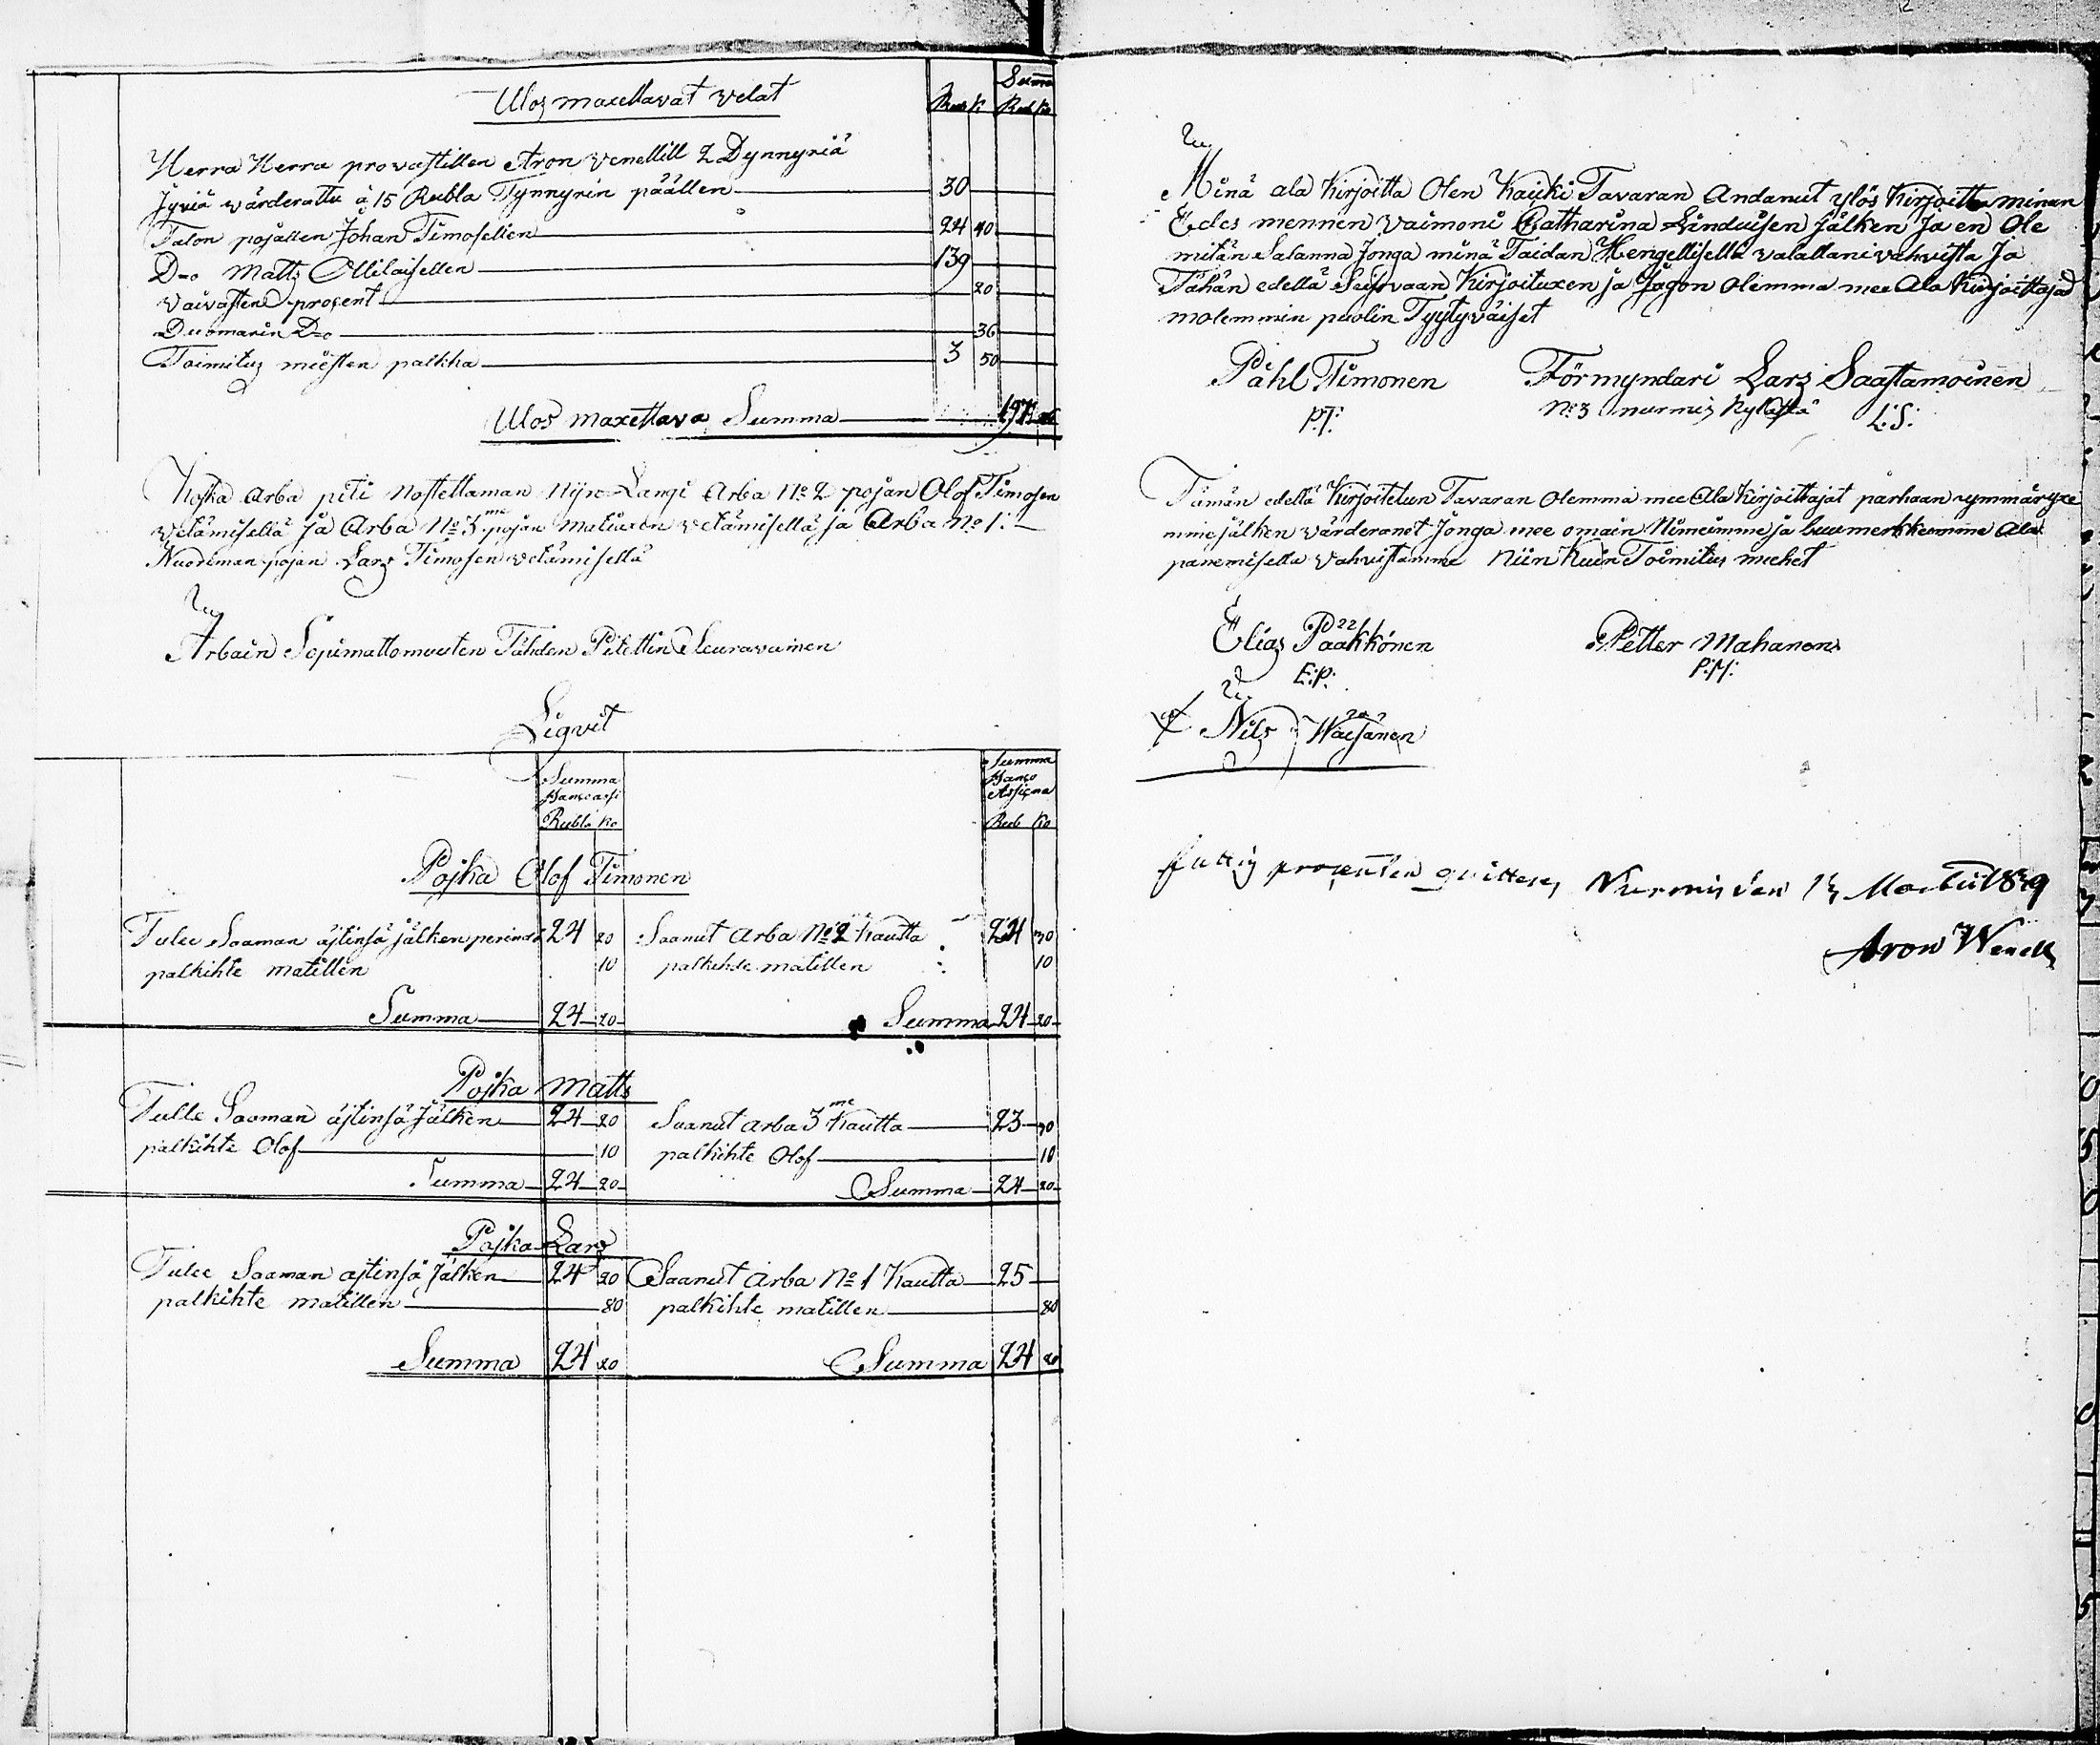 Ulos maxettavat velat
Summa
Rub K Rub Ko
Herra Herra provastillen Aron Venellill 2 Dynnyriä
Jyviä värderattu à 15 Rubla Tynnyrin päällen 30
Talon pojallen Johan Timosellen 24 40
D-o Matts Ollilaisellen 139
Vaivasten prosent 20
Duomarin D-o 36
Toimitus miesten palkka 3 50
Ulos maxettava Summa
Koska Arba piti Nostettaman Nijn Langi Arba No 2 pojan Olof Timosen
vetämisellä ja Arba No 3me pojan matiaxen vetämisellä ja Arba No 1:
Nuoriman pojan Lars Timosen vetämisellä
Arbain Sopimattomuuten Tähden Pitettin Seuravainen
Liqvit
Summa
Banco assi
Rubla Ko
Summa
Banco
Assigna
Rub Ko
Pojka Olof Timonen
Tulee Saaman äjtinsä jälken perindö 24 20 Saanut Arba No 2 kautta 24 30
palkihte matillen 10 palkihte matillen 10
Summa 24 20 Summa 24 20
Pojka Matts
Tulle Saaman äjtinsä Jälken 24 20 Saanut Arba 3me kautta 23 30
palkihte Olof 10 palkihte Olof 10
Summa 24 20 Summa 24 20
Pojka Lars
Tulee Saaman äjtinsä Jälken 24 20 Saanut Arba No 1 Kautta 25
palkihte matillen 80 palkihte matillen 80
Summa 24 20 Summa 24 20
Minä ala kirjoitta Olen Kaicki Tavaran Andanut ylös kirjoitta minun
Edes mennen Vaimoni Catharina Linduisen jälken Ja en Ole
mitän Salanna Jonga minä Taidan Hengellisellä valallani vahvista Ja
Tähän edellä Seisovaan Kirjoituxen ja Jagon Olemma mee Ala Kirjoittajad
molemmin puolin Tyytyväiset
Påhl Timonen Förmyndari Lars Saastamoinen
P.T: No 3 nurmis kylästä L:S:
Tämän edellä Kirjoitetun Tavaran Olemma mee Ala Kirjoittajat parhaan ymmäryxe
mme jälken värderanet Jonga mee omain Nimeimme ja buumerkkemme Ala
panemisella Vahvistamme Niin Kuin Toimitus miehet
Elias Pääkkönen Petter Mahanen
E:P: P:M:
Nils Waisänen
fattig prosenten qvitteras Nurmis den 13 Martii 1839
Aron Wenell